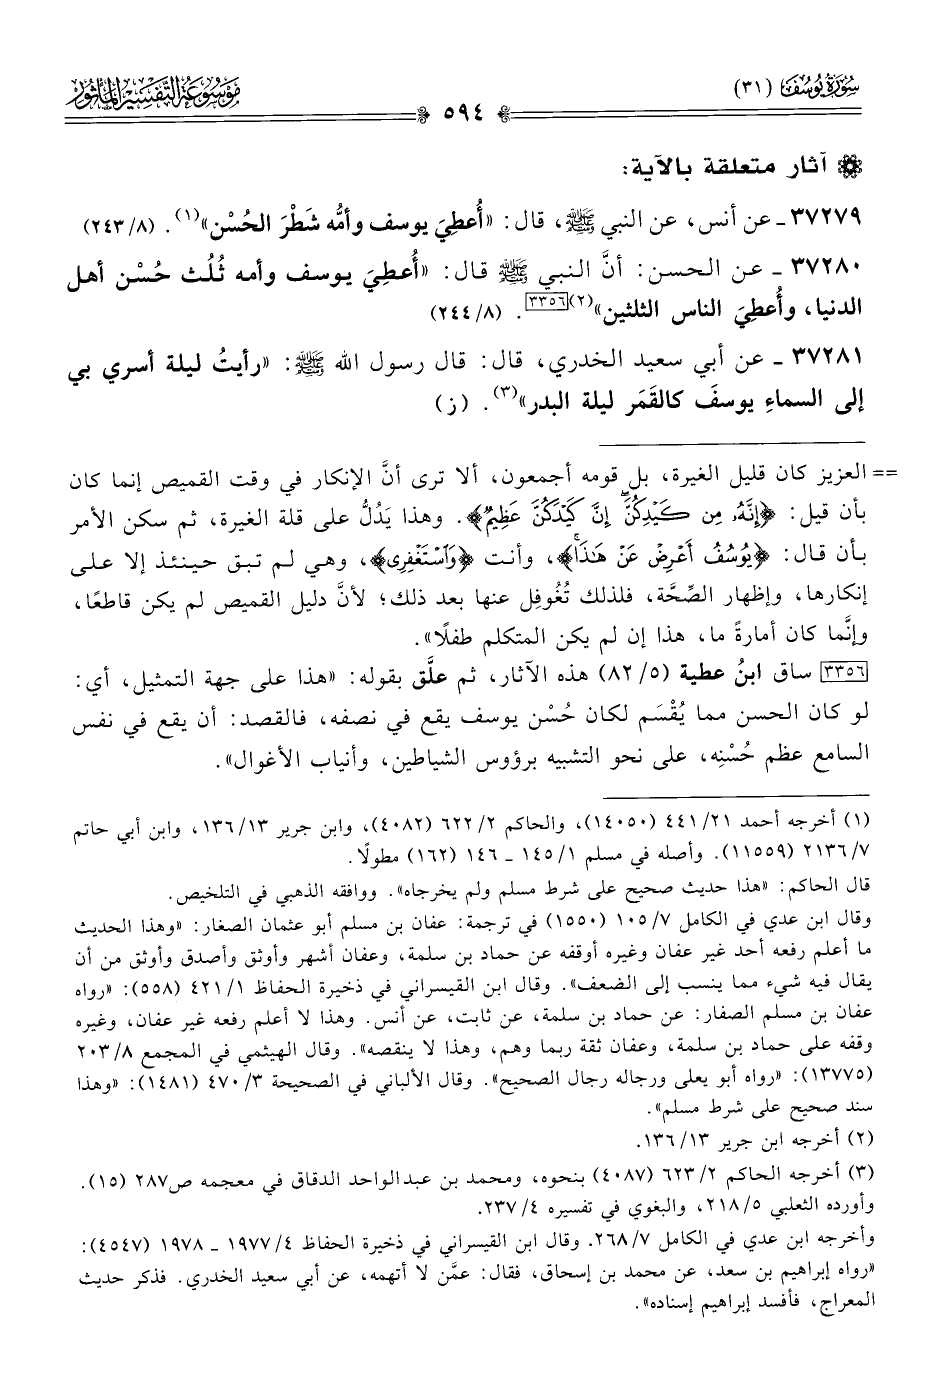 سُورَةُ يُوسُفَ (٣١)
٥٩٤
مَوْسُوعَةُ التَّفْسِيرِ المَأْثُورِ
آثار متعلقة بالآية:
٣٧٢٧٩ ـ عن أنس، عن النبي ﷺ، قال: «أُعطِيَ يوسف وأمُّه شَطْرَ الحُسْن»(١). (٨/ ٢٤٣)
٣٧٢٨٠ ـ عن الحسن: أنَّ النبي ﷺ قال: «أُعطِيَ يوسف وأمه ثُلُث حُسْن أهل
الدنيا، وأُعطِيَ الناس الثلثين»(٢)[٣٣٥٦]. (٨/ ٢٤٤)
٣٧٢٨١ ـ عن أبي سعيد الخدري، قال: قال رسول الله ﷺ: «رأيتُ ليلة أسري بي
إلى السماءِ يوسفَ كالقَمَر ليلة البدر»(٣). (ز)
== العزيز كان قليل الغيرة، بل قومه أجمعون، ألا ترى أنَّ الإنكار في وقت القميص إنما كان
بأن قيل: ﴿إِنَّهُۥ مِن كَيْدِكُنَّۖ إِنَّ كَيْدَكُنَّ عَظِيمٌ﴾. وهذا يَدُلُّ على قلة الغيرة، ثم سكن الأمر
بأن قال: ﴿يُوسُفُ أَعْرِضْ عَنْ هَـٰذَاۚ﴾، وأنت ﴿وَاسْتَغْفِرِى﴾، وهي لم تبق حينئذ إلا على
إنكارها، وإظهار الصِّحَّة، فلذلك تُغُوفِل عنها بعد ذلك؛ لأنَّ دليل القميص لم يكن قاطعًا،
وإنَّما كان أمارةً ما، هذا إن لم يكن المتكلم طفلًا».
[٣٣٥٦] ساق ابنُ عطية (٥/ ٨٢) هذه الآثار، ثم علَّق بقوله: «هذا على جهة التمثيل، أي:
لو كان الحسن مما يُقْسَم لكان حُسْن يوسف يقع في نصفه، فالقصد: أن يقع في نفس
السامع عظم حُسْنِه، على نحو التشبيه برؤوس الشياطين، وأنياب الأغوال».
(١) أخرجه أحمد ٢١/ ٤٤١ (١٤٠٥٠)، والحاكم ٢/ ٦٢٢ (٤٠٨٢)، وابن جرير ١٣/ ١٣٦، وابن أبي حاتم
٧/ ٢١٣٦ (١١٥٥٩). وأصله في مسلم ١/ ١٤٥ ـ ١٤٦ (١٦٢) مطولًا.
قال الحاكم: «هذا حديث صحيح على شرط مسلم ولم يخرجاه». ووافقه الذهبي في التلخيص.
وقال ابن عدي في الكامل ٧/ ١٠٥ (١٥٥٠) في ترجمة: عفان بن مسلم أبو عثمان الصغار: «وهذا الحديث
ما أعلم رفعه أحد غير عفان وغيره أوقفه عن حماد بن سلمة، وعفان أشهر وأوثق وأصدق وأوثق من أن
يقال فيه شيء مما ينسب إلى الضعف». وقال ابن القيسراني في ذخيرة الحفاظ ١/ ٤٢١ (٥٥٨): «رواه
عفان بن مسلم الصفار: عن حماد بن سلمة، عن ثابت، عن أنس. وهذا لا أعلم رفعه غير عفان، وغيره
وقفه على حماد بن سلمة، وعفان ثقة ربما وهم، وهذا لا ينقصه». وقال الهيثمي في المجمع ٨/ ٢٠٣
(١٣٧٧٥): «رواه أبو يعلى ورجاله رجال الصحيح». وقال الألباني في الصحيحة ٣/ ٤٧٠ (١٤٨١): «وهذا
سند صحيح على شرط مسلم».
(٢) أخرجه ابن جرير ١٣/ ١٣٦.
(٣) أخرجه الحاكم ٢/ ٦٢٣ (٤٠٨٧) بنحوه، ومحمد بن عبدالواحد الدقاق في معجمه ص٢٨٧ (١٥).
وأورده الثعلبي ٥/ ٢١٨، والبغوي في تفسيره ٤/ ٢٣٧.
وأخرجه ابن عدي في الكامل ٧/ ٢٦٨. وقال ابن القيسراني في ذخيرة الحفاظ ٤/ ١٩٧٧ ـ ١٩٧٨ (٤٥٤٧):
«رواه إبراهيم بن سعد، عن محمد بن إسحاق، فقال: عمَّن لا أتهمه، عن أبي سعيد الخدري. فذكر حديث
المعراج، فأفسد إبراهيم إسناده».